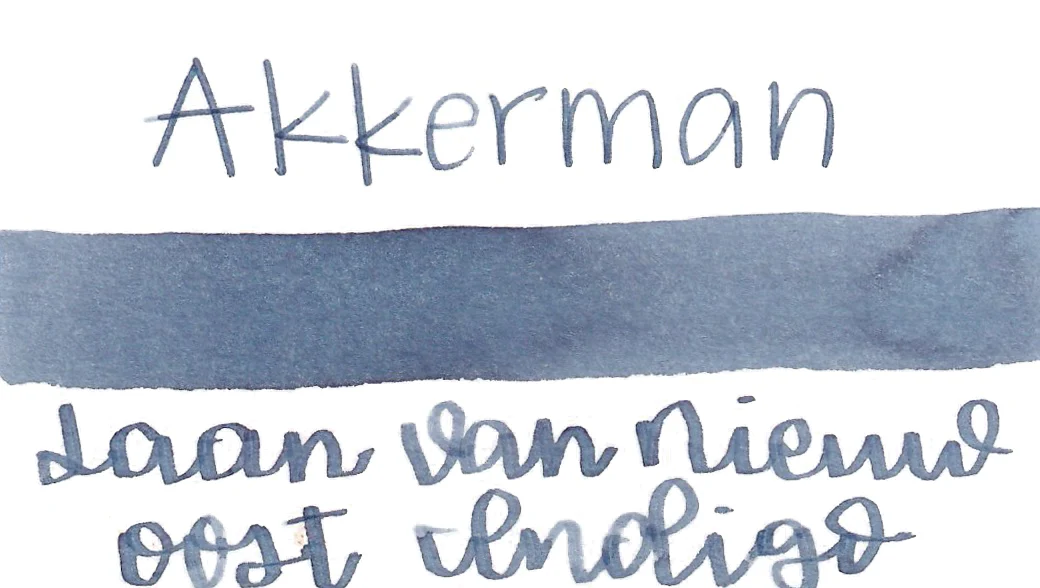 Akkerman
Laan van Nieuw
oost Indigo